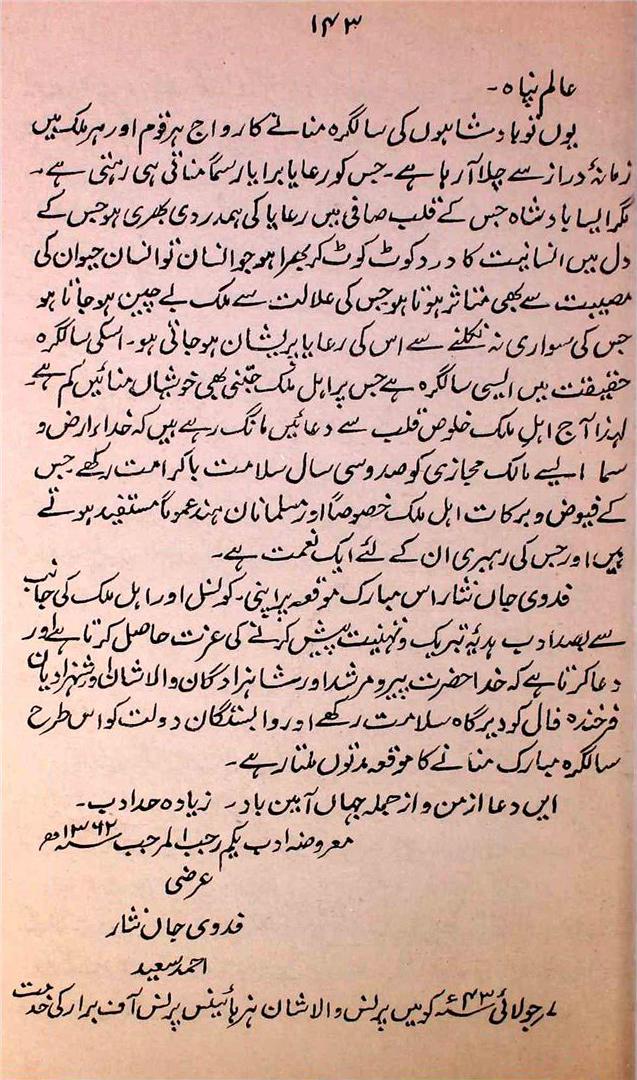 ۱۴۳
عالم پناہ -
یوں تو بادشاہوں کی سالگرہ منانے کا رواج ہر قوم اور ہر ملک میں
زمانۂ دراز سے چلا آرہا ہے۔ جس کو رعایا برایا رسماً مناتی ہی رہتی ہے۔
مگر ایسا بادشاہ جس کے قلب صافی میں رعایا کی ہمدردی بھری ہو جس کے
دل میں انسانیت کا درد کوٹ کوٹ کر بھرا ہو جو انسان تو انسان حیوان کی
مصیبت سے بھی متاثر ہوتا ہو جس کی علالت سے ملک بے چین ہو جاتا ہو
جس کی سواری نہ نکلنے سے اس کی رعایا پریشان ہو جاتی ہو۔ اسکی سالگرہ
حقیقت میں ایسی سالگرہ ہے جس پر اہل ملک جتنی بھی خوشیاں منائیں کم ہے۔
لہذا آج اہل ملک خلوص قلب سے دعائیں مانگ رہے ہیں کہ خداء ارض و
سما ایسے مالک مجازی کو صد و سی سال سلامت باکرامت رکھے جس
کے فیوض و برکات اہل ملک خصوصاً اور مسلمانان ہند عموماً مستفید ہوتے
ہیں اور جس کی رہبری ان کے لئے ایک نعمت ہے۔
فدوی جاں نثار اس مبارک موقعہ پر اپنی۔ کونسل اور اہل ملک کی جانب
سے بصد ادب ہدیۂ تبریک و تہنیت پیش کرنے کی عزت حاصل کرتا ہے اور
دعا کرتا ہے کہ خدا حضرت پیر و مرشد اور شاہزادگان والا شان و شہزادیان
فرخندہ فال کو دیرگاہ سلامت رکھے اور وابستگان دولت کو اس طرح
سالگرہ مبارک منانے کا موقعہ مدتوں ملتا رہے۔
ایں دعا از من و از جملہ جہاں آمین باد۔ زیادہ حد ادب۔
معروضہ ادب یکم رجب المرجب سنہ ۱۳۶۲ھ
عرضی
فدوی جاں نثار
احمد سعید
۷ جولائی سنہ ۴۳ء کو میں پرنس والا شان ہز ہائینس پرنس آف برار کی خدمت